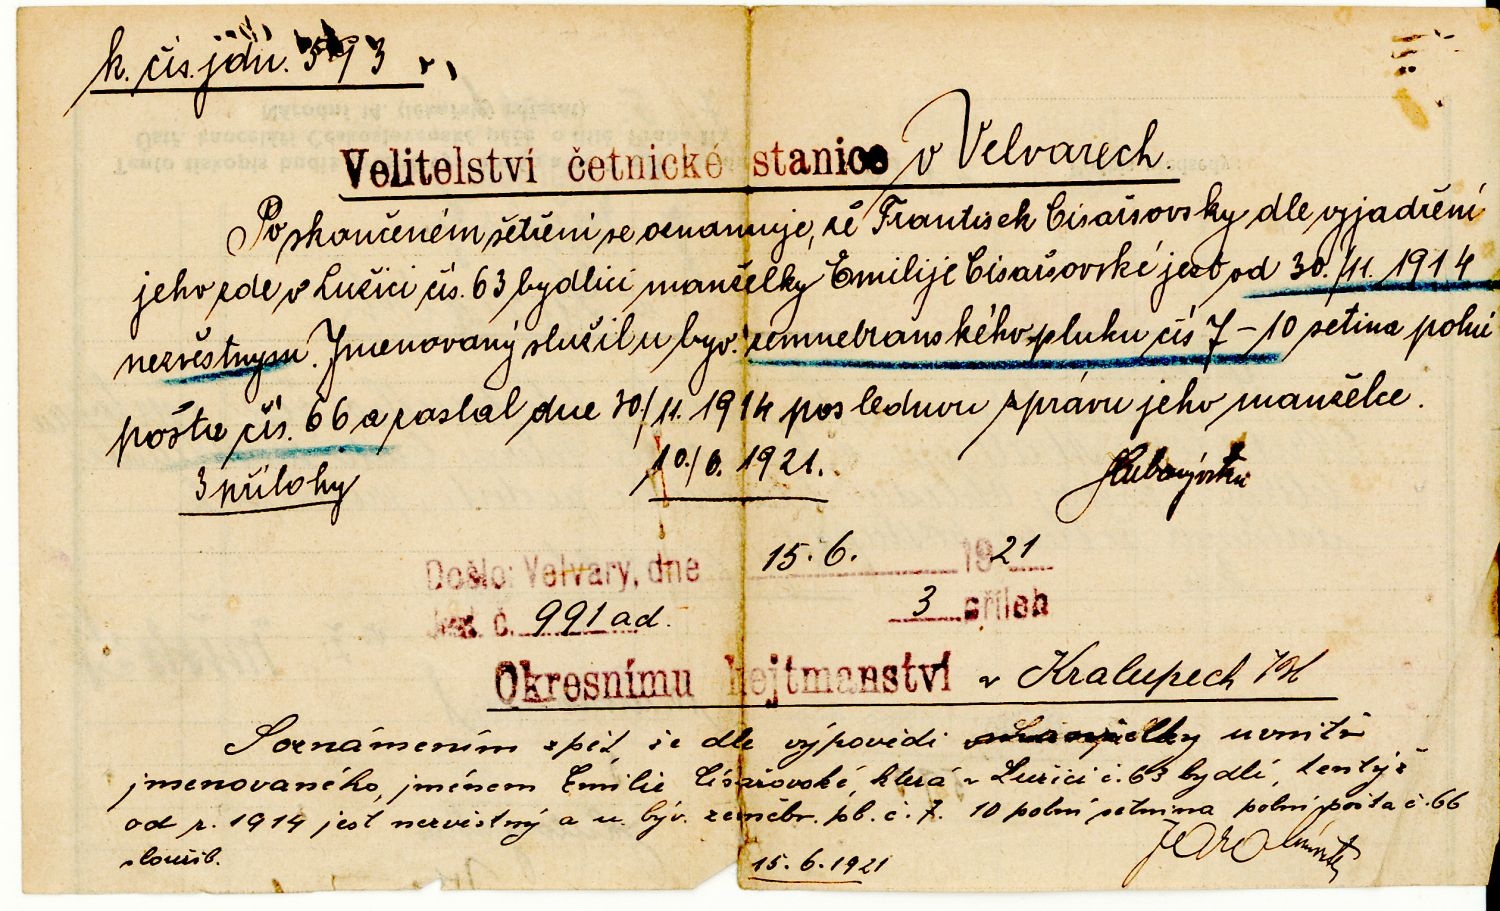 k. čís. jdn. 593
Velitelství četnické stanice v Velvarech.
Po skončeném šetření se oznamuje, že František Císařovsky dle vyjadření
jeho zde v Lužici čís. 63 bydlící manželky Emilije Císařovské jest od 30./11. 1914
nezvěstnym. Jmenovaný sloužil u byv. zemnebranského pluku čís 7 – 10 setina polní
pošta čís. 66 a zaslal dne 30./11. 1914 poslednou zprávu jeho manželce.
3 přílohy
10./6. 1921.
Došlo: Velvary, dne 15. 6. 1921
č. 991 ad. 3 příloh
Okresnímu hejtmanství v Kralupech
S oznámením zpět, že dle výpovědi uvnitř
jmenovaného, jménem Emilie Císařovské, která v Lužici č. 63 bydlí, tentýž
od r. 1914 jest nezvěstný a u býv. zeměbr. pl. č. 7. 10 polní setnina polní pošta č. 66
sloužil.
15. 6. 1921